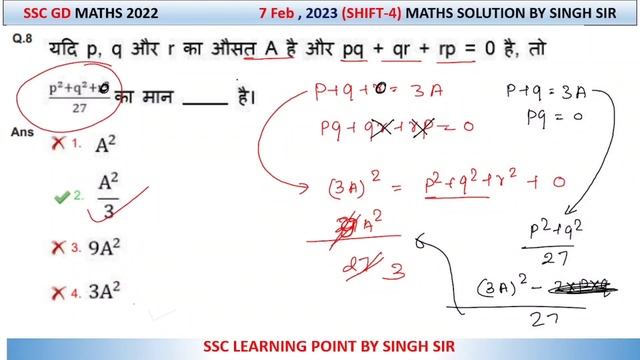 SSC GD MATHS 2022 7 Feb , 2023 (SHIFT-4) MATHS SOLUTION BY SINGH SIR
Q.8 यदि p, q और r का औसत A है और pq + qr + rp = 0 है, तो
p²+q²+r²/27 का मान ____ है।
Ans
1. A²
2. A²/3
3. 9A²
4. 3A²
P+q+0 = 3A
Pq + qr + rp = 0
(3A)² = p²+q²+r² + 0
A²
27 3
P+q = 3A
Pq = 0
p²+q²
27
(3A)² -
27
SSC LEARNING POINT BY SINGH SIR